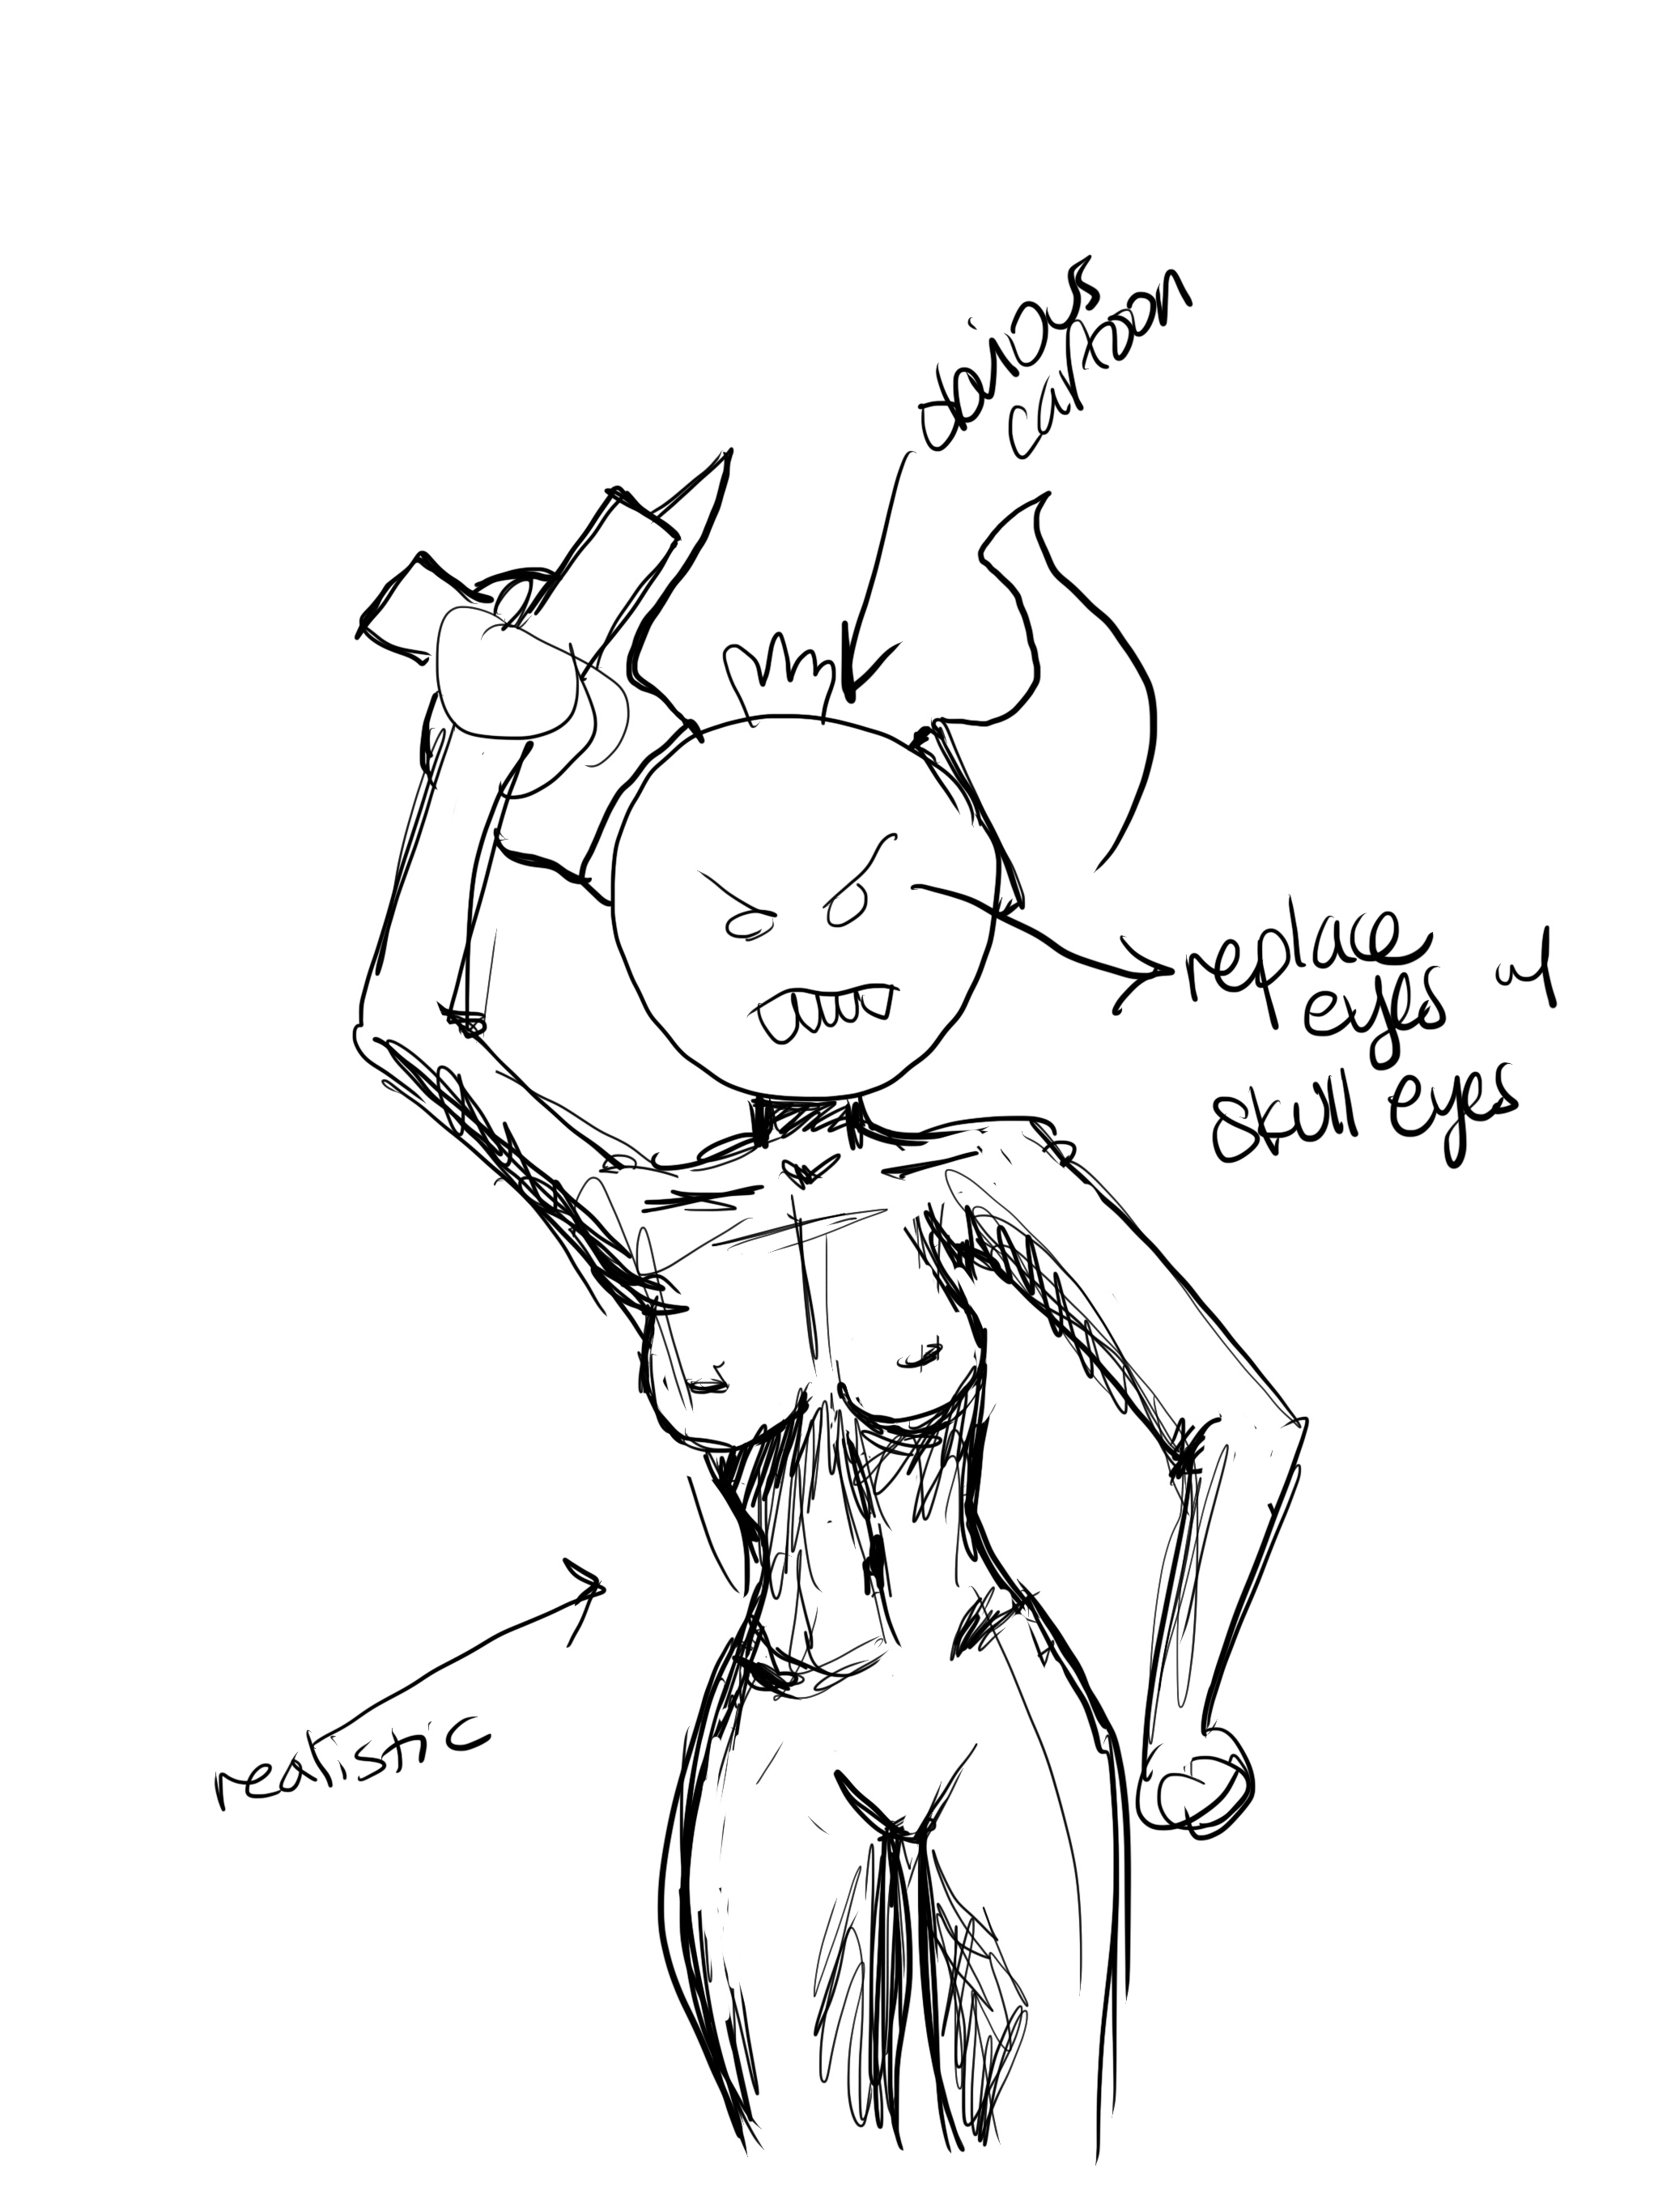 obvious
cartoon
replace
eyes w/
skull eyes
realistic